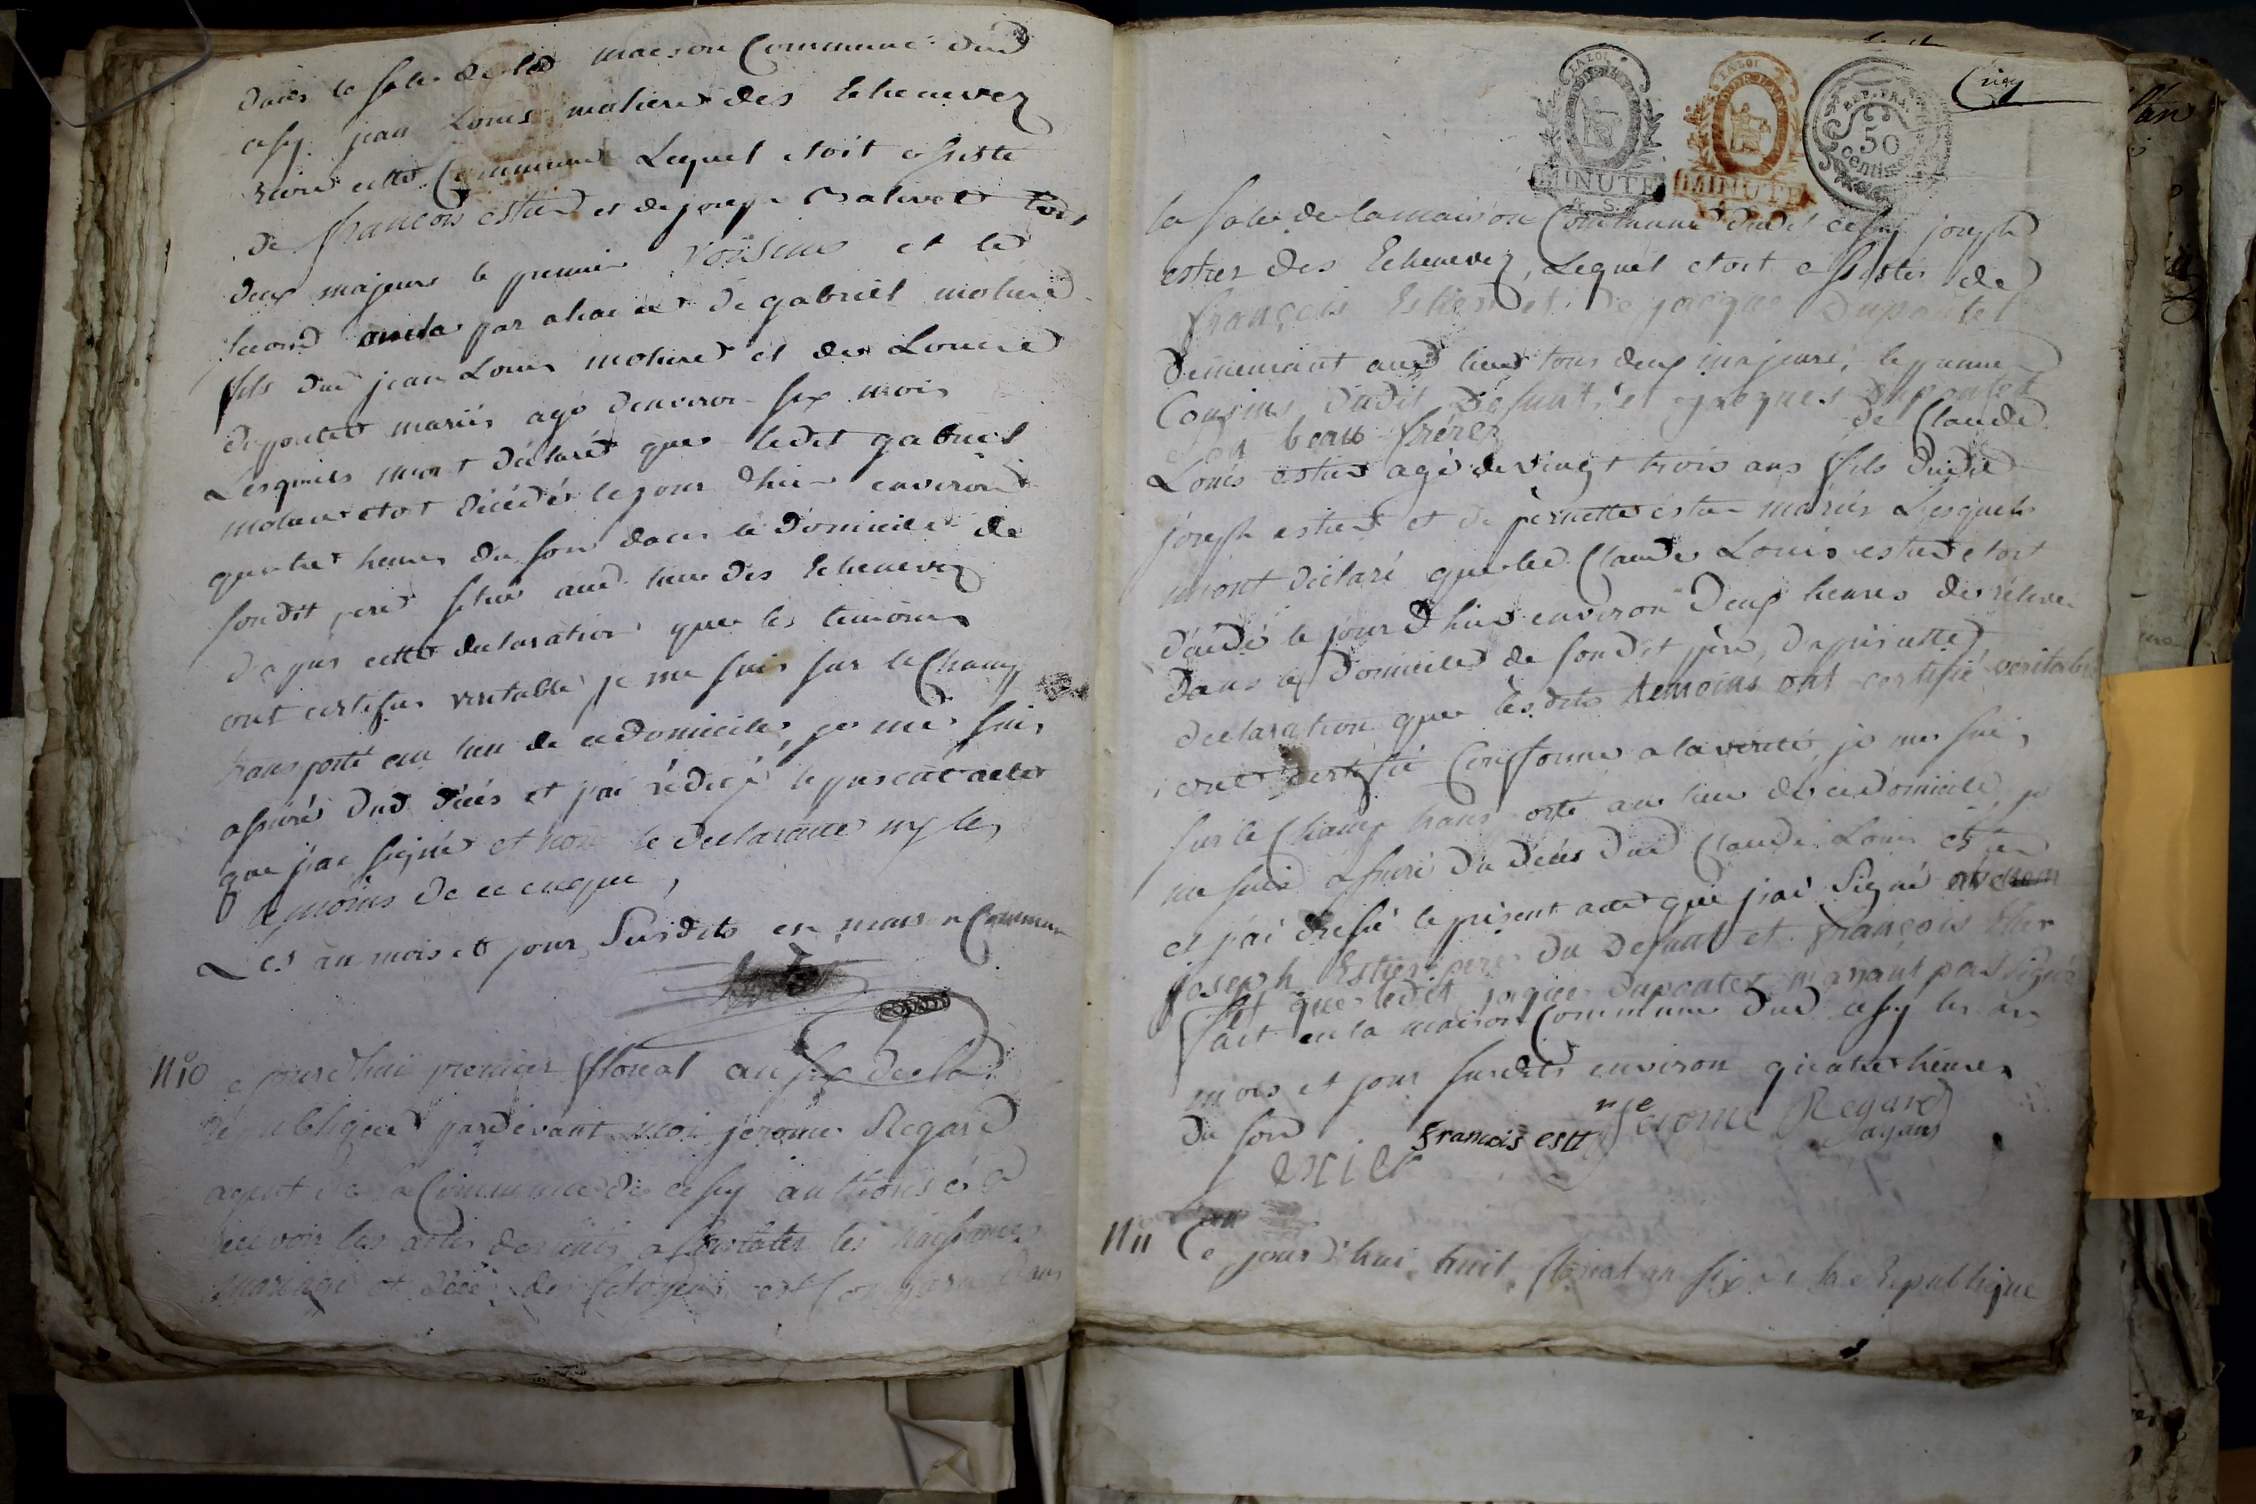 dans la sale de la maison Commune dud
cesy jean Louis molieret des Echenevez
riere cette Commune Lequel etoit assisté
de françois estier et de joseph Balivet tous
deux majeurs le premier voisins et le
second oncle par aliance de gabriel molieret
fils dud jean Louis molieret et de Louise
dupontet mariés agé denviron six mois
Lesquels mont déclaré que ledit gabriel
molieret etoit décédés le jour dhier environ
quatre heures du soir dans le Domicile de
sondit pere situé aud lieu des Echenevez
daprès cette declaration que les témoins
ont certifiés veritable je me suis sur le Champ
transporté au lieu de ce domicile, je me suis
assuré dud décés et j'ai rédigé le present acte
que j'ai signé et non le declarant ny les
témoins de ce enquis,
Les an mois et jour Susdits en maison Commune
N 10 ce jourdhui premier floréal an six de la
république pardevant moi jerome Regard
agent de la Commune de cesy authorisé a
recevoir les actes destinés a constater les naissances
mariage et décés des Citoyens est Comparu dans
Cesy
LA LOI
LA LOI
MINUTE
MINUTE
REP. FRA.
50
centimes
la sale de la maison Commune dudt cesy joseph
estier des Echenevez, Lequel etoit assistés de
françois Estier et de jacque Dupontet
demeurant aud lieu tous deux majeurs, le premier
Cousins dudit Defunt, et jacques dupontet
est beau frérez
de Claude
Louis estier agé de vingt trois ans fils dudit
joseph estier et de pernette estier mariés Lesquels
mont déclaré que led Claude Louis estier etoit
décédé le jour d'hier environ deux heures de relevée
dans le Domicile de sondit père, dapris cette
declaration que lesdits temoins ont certifié veritable
ont certifié Conforme a la verité, je me suis
sur le Champ transporté au lieu de ce domicile je
me suis assuré du décés dud Claude Louis estier
et j'ai dressé le présent acte que j'ai Signé avec
joseph Estier pere du Defunt et françois Estier
et que ledit jacques Dupontet n'ayant pas signé
fait en la maison Commune dud cesy les an
mois et jour susdits environ quatre heures
du soir
francois estt
Jerome Regard
agant
exier
N 11 Ce jour d'hui huit floréal an six de la République